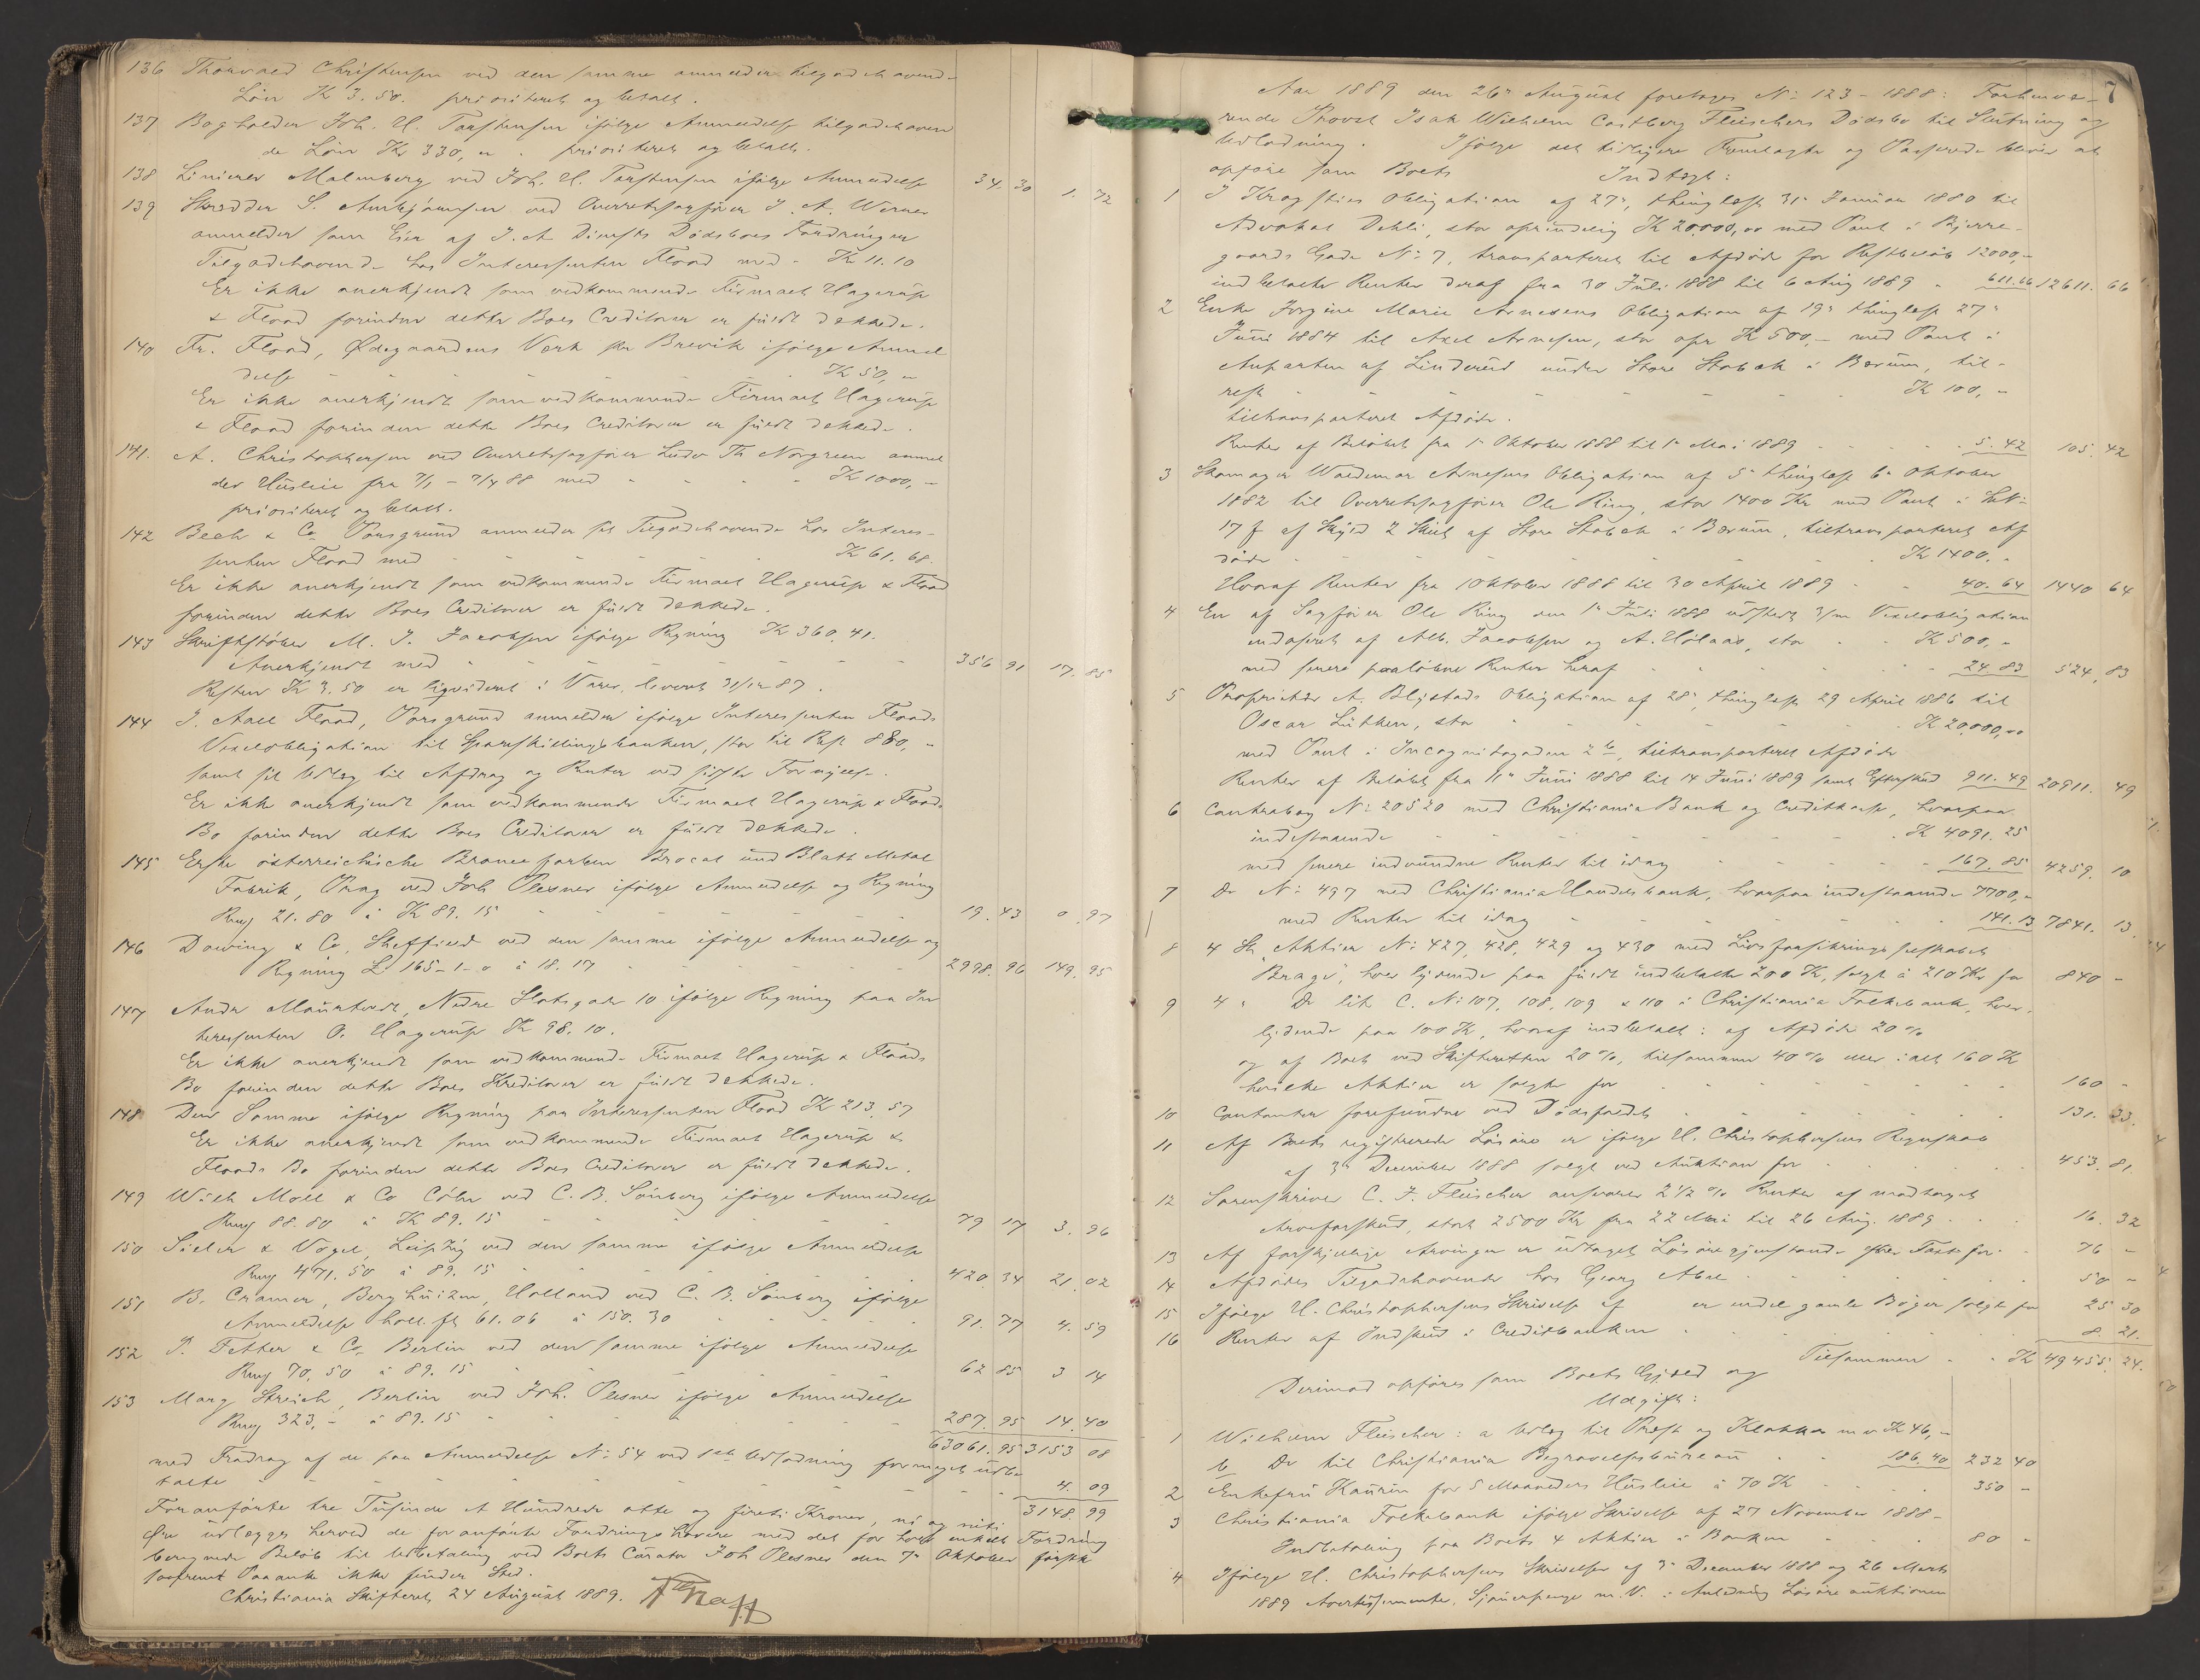 136 Thorvald Christensen ved den samme anmelder tilgodehavend-
Løn Kr 3.50. prioriteret og betalt.
137 Bogholder Joh. U. Torstensen ifølge Anmeldelse tilgodehaven
de Løn Kr 330, „ . prioriteret og betalt.
138 Linierer Malmberg ved Joh. U. Torstensen ifølge Anmeldelse 34. 30 1. 72
139 Skrædder S. ved Overretssagfører J. A. Werner
anmelder som Eier af J. A. Dødsboes Fordringer
Tilgodehavende hos Interessenten Flood med - Kr 11.10
Er ikke anerkjendt som vedkommende Firmaet Hagerup
& Flood forinden dette Boes Creditorer er fuldt dækkede.
140 Fr. Flood, Ødegaardens Værk pr Brevik ifølge Anmel
delse - - - - - Kr 50, „
Er ikke anerkjendt som vedkommende Firmaet Hagerup
& Flood forinden dette Boes Creditorer er fuldt dækkede.
141. A. Christophersen ved Overretssagfører Luder Th Norgreen anmel
der Husleie fra 7/1 - 7/4 88 med - - - Kr 1000, -
prioriteret og betalt.
142 Bech & Co Porsgrund anmelder sit Tilgodehavende hos Interes-
senten Flood med - - - - - Kr 61. 68.
Er ikke anerkjendt som vedkommende Firmaet Hagerup & Flood
forinden dette Boes Creditorer er fuldt dækkede.
143 Skriftstøber M. J. Jacobsen ifølge Regning Kr 360. 41.
Anerkjendt med - - - - - 356 91 17. 85
Resten Kr 3.50 er ligvideret i Varer, leveret 31/12 87.
144 J. Aall Flood, Porsgrund anmelder ifølge Interessenten Floods
Vexelobligation til Sparskillingsbanken, stor til Rest 880, -
samt sit Udlæg til Afdrag og Renter ved sidste Fornyelse.
Er ikke anerkjendt som vedkommende Firmaet Hagerup & Floods
Bo forinden dette Boes Creditorer er fuldt dækkede.
145 Erste österreichische Broncefarben Brocat und Blatt Metal
Fabrik, Prag ved Joh. Plesner ifølge Anmeldelse og Regning
Rmg 21. 80 à Kr 89. 15 - - - - 19. 43 0. 97
146 Dowing & Co, Sheffield ved den samme ifølge Anmeldelse og
Regning £ 165-1-0 à 18. 17 - - - - 2998. 96 149. 95
147 Andr Nedre Slotsgade 10 ifølge Regning paa In
teressenten O. Hagerup Kr 98. 10.
Er ikke anerkjendt som vedkommende Firmaet Hagerup & Floods
Bo forinden dette Boes Kreditorer er fuldt dækkede.
148 Den Samme ifølge Regning paa Interessenten Flood Kr 213. 57
Er ikke anerkjendt som vedkommende Firmaet Hagerup &
Floods Bo forinden dette Boes Creditorer er fuldt dækkede.
149 Wilh Moll & Co Cöln ved C. B. Sönberg ifølge Anmeldelse
Rmg 88. 80 à Kr 89. 15 - - - - 79 17 3. 96
150 Sieler & Vogel, Leipzig ved den samme ifølge Anmeldelse
Rmg 471. 50 à 89. 15 - - - - 420 34 21. 02
151 B. Cramer, Berghuizen, Holland ved C. B. Sönberg ifølge
Anmeldelse holl. fl 61. 06 à 150. 30 - - - 91. 77 4. 59
152 P. Fetter & Co, Berlin ved den samme ifølge Anmeldelse
Rmg 70, 50 à 89. 15 - - - - 62 85 3 14
153 Marg Streich, Berlin ved Joh. Plesner ifølge Anmeldelse
Rmg 323, - à 89. 15 - - - - 287. 95 14. 40
63061. 95 3153 08
med Fradrag af de paa Anmeldelse No: 54 ved 1ste Udlodning formeget udbe
talte - - - - - 4. 09
3148. 99
Foranførte tre Tusinde et Hundrede otte og firti Kroner, ni og niti
Øre udlægges herved de foranførte Fordringshavere med det for hver enkelt Fordring
beregnede Beløb til Udbetaling ved Boets Curator Joh Plesner den 7de Oktober førstk
saafremt Paaanke ikke finder Sted.
Christiania Skifteret 24 August 1889.
7
Aar 1889 den 26de August foretages No: 123 - 1888: Forhenvæ-
rende Provst Isak Wilhelm Castberg Fleischers Dødsbo til Slutning og
Udlodning. Ifølge det tidligere Fremlagte og Passerede bliver at
opføre som Boets Indtægt:
1 J Kragsties Obligation af 27de, thinglæst 31te Januar 1880 til
Advokat Dehli, stor oprindelig Kr 20.000,00 med Pant i Bjerre-
gaards Gade No: 7, transporteret til Afdøde for Restbeløb 12000,-
indbetalte Renter deraf fra 30 Juli 1888 til 6 Aug 1889 - 611.66 12611. 66
2 Enke Jorgine Marie Arnesens Obligation af 19de thinglæst 27de
Juni 1884 til Axel Arnesen, stor opr Kr 500,- med Pant i
Anparten af Linderud under Store Stabæk i Bærum, til-
rest - - - - - Kr 100, -
tiltransporteret Afdøde.
Renter af Beløbet fra 1ste Oktober 1888 til 1ste Mai 1889 - - - 5. 42 105. 42
3 Skomager Waldemar Arnesens Obligation af 5te thinglæst 6te Oktober
1882 til Overretssagfører Ole Ring, stor 1400 Kr med Pant i
17 f af Skyld 2 Skill af Store Stabæk i Bærum, tiltransporteret Af
døde - - - - - Kr 1400, -
Heraf Renter fra 1 Oktober 1888 til 30 April 1889 - - 40. 64 1440 64
4 En af Sagfører Ole Ring den 1ste Juli 1888 udstedt 3/m Vexelobligation
endosseret af Alb. Jacobsen og A. Hølaas, stor - - Kr 500, -
med senere paaløbne Renter heraf - - - - 24 83 524. 83
5 Proprietær A. Blystads Obligation af 28de, thinglæst 29 April 1886 til
Oscar Lütken, stor - - - - Kr 20,000,00
med Pant i Incognitogaden 2 b, tiltransporteret Afdøde
Renter af Beløbet fra 11te Juni 1888 til 14 Juni 1889 samt Efterskud 911. 49 20911. 49
6 Contrabog No: 20520 med Christiania Bank og Creditkasse, hvorpaa
indestaaende - - - - Kr 4091. 25
med senere indvundne Renter til idag - - - - 167. 85 4259. 10
7 Do No: 497 med Christiania Handelsbank, hvorpaa indestaaende 7700, -
med Renter til idag - - - - 141. 13 7841. 13.
8 4 St. Aktier No: 427, 428, 429 og 430 med Livsforsikringsselskabet
„Brage“, hver lydende paa fuldt indbetalte 200 Kr, solgt à 210 Kr for 840 -
9 4 „ Do lit C. No: 107, 108, 109 & 110 i Christiania Folkebank, hver
lydende paa 100 Kr, hvoraf indbetalt: af Afdøde 20 %
og af Boet ved Skifteretten 20 %, tilsammen 40 % eller ialt 160 Kr
hvilke Aktier er solgte for - - - - 160 -
10 Contanter forefundne ved Dødsfaldet - - - - 131. 33.
11 Af Boets registrerede Løsøre er ifølge U. Christophersens Regnskab
af 3de December 1888 solgt ved Auktion for - - - - 453. 81.
12 Sorenskriver C. J. Fleischer ansvarer 2 1/2 % Renter af modtaget
Arveforskud, stort 2500 Kr fra 22 Mai til 26 Aug. 1889 - - - 16. 32
13 Af forskjellige Arvinger er udtaget Løsøregjenstande efter Taxt for. 76 -
14 Afdødes Tilgodehavende hos Georg Abel - - - - 50 -
15 Ifølge U. Christophersens Skrivelse af er endel gamle Bøger solgt for 25 30
16 Renter af Indskud i Creditbanken - - - - 8. 21.
Tilsammen - - Kr 49455. 24.
Derimod opføres som Boets Gjæld og
Udgift:
1 Wilhelm Fleischer: a Udlæg til Præst og Klokker m v Kr 46, -
b Do til Christiania Begravelsesbureau - - 186. 40 232 40
2 Enkefru Kaurin for 5 Maaneders Husleie à 70 Kr - - - - 350 -
3 Christiania Folkebank ifølge Skrivelse af 27 November 1888 -
Indbetaling paa Boets 4 Aktier i Banken - - - - 80 -
4 Ifølge U. Christophersens Skrivelser af 3de December 1888 og 26 Marts
1889 Avertissementer, Sjauerpenge m. V. i Anledning Løsøreauktionen